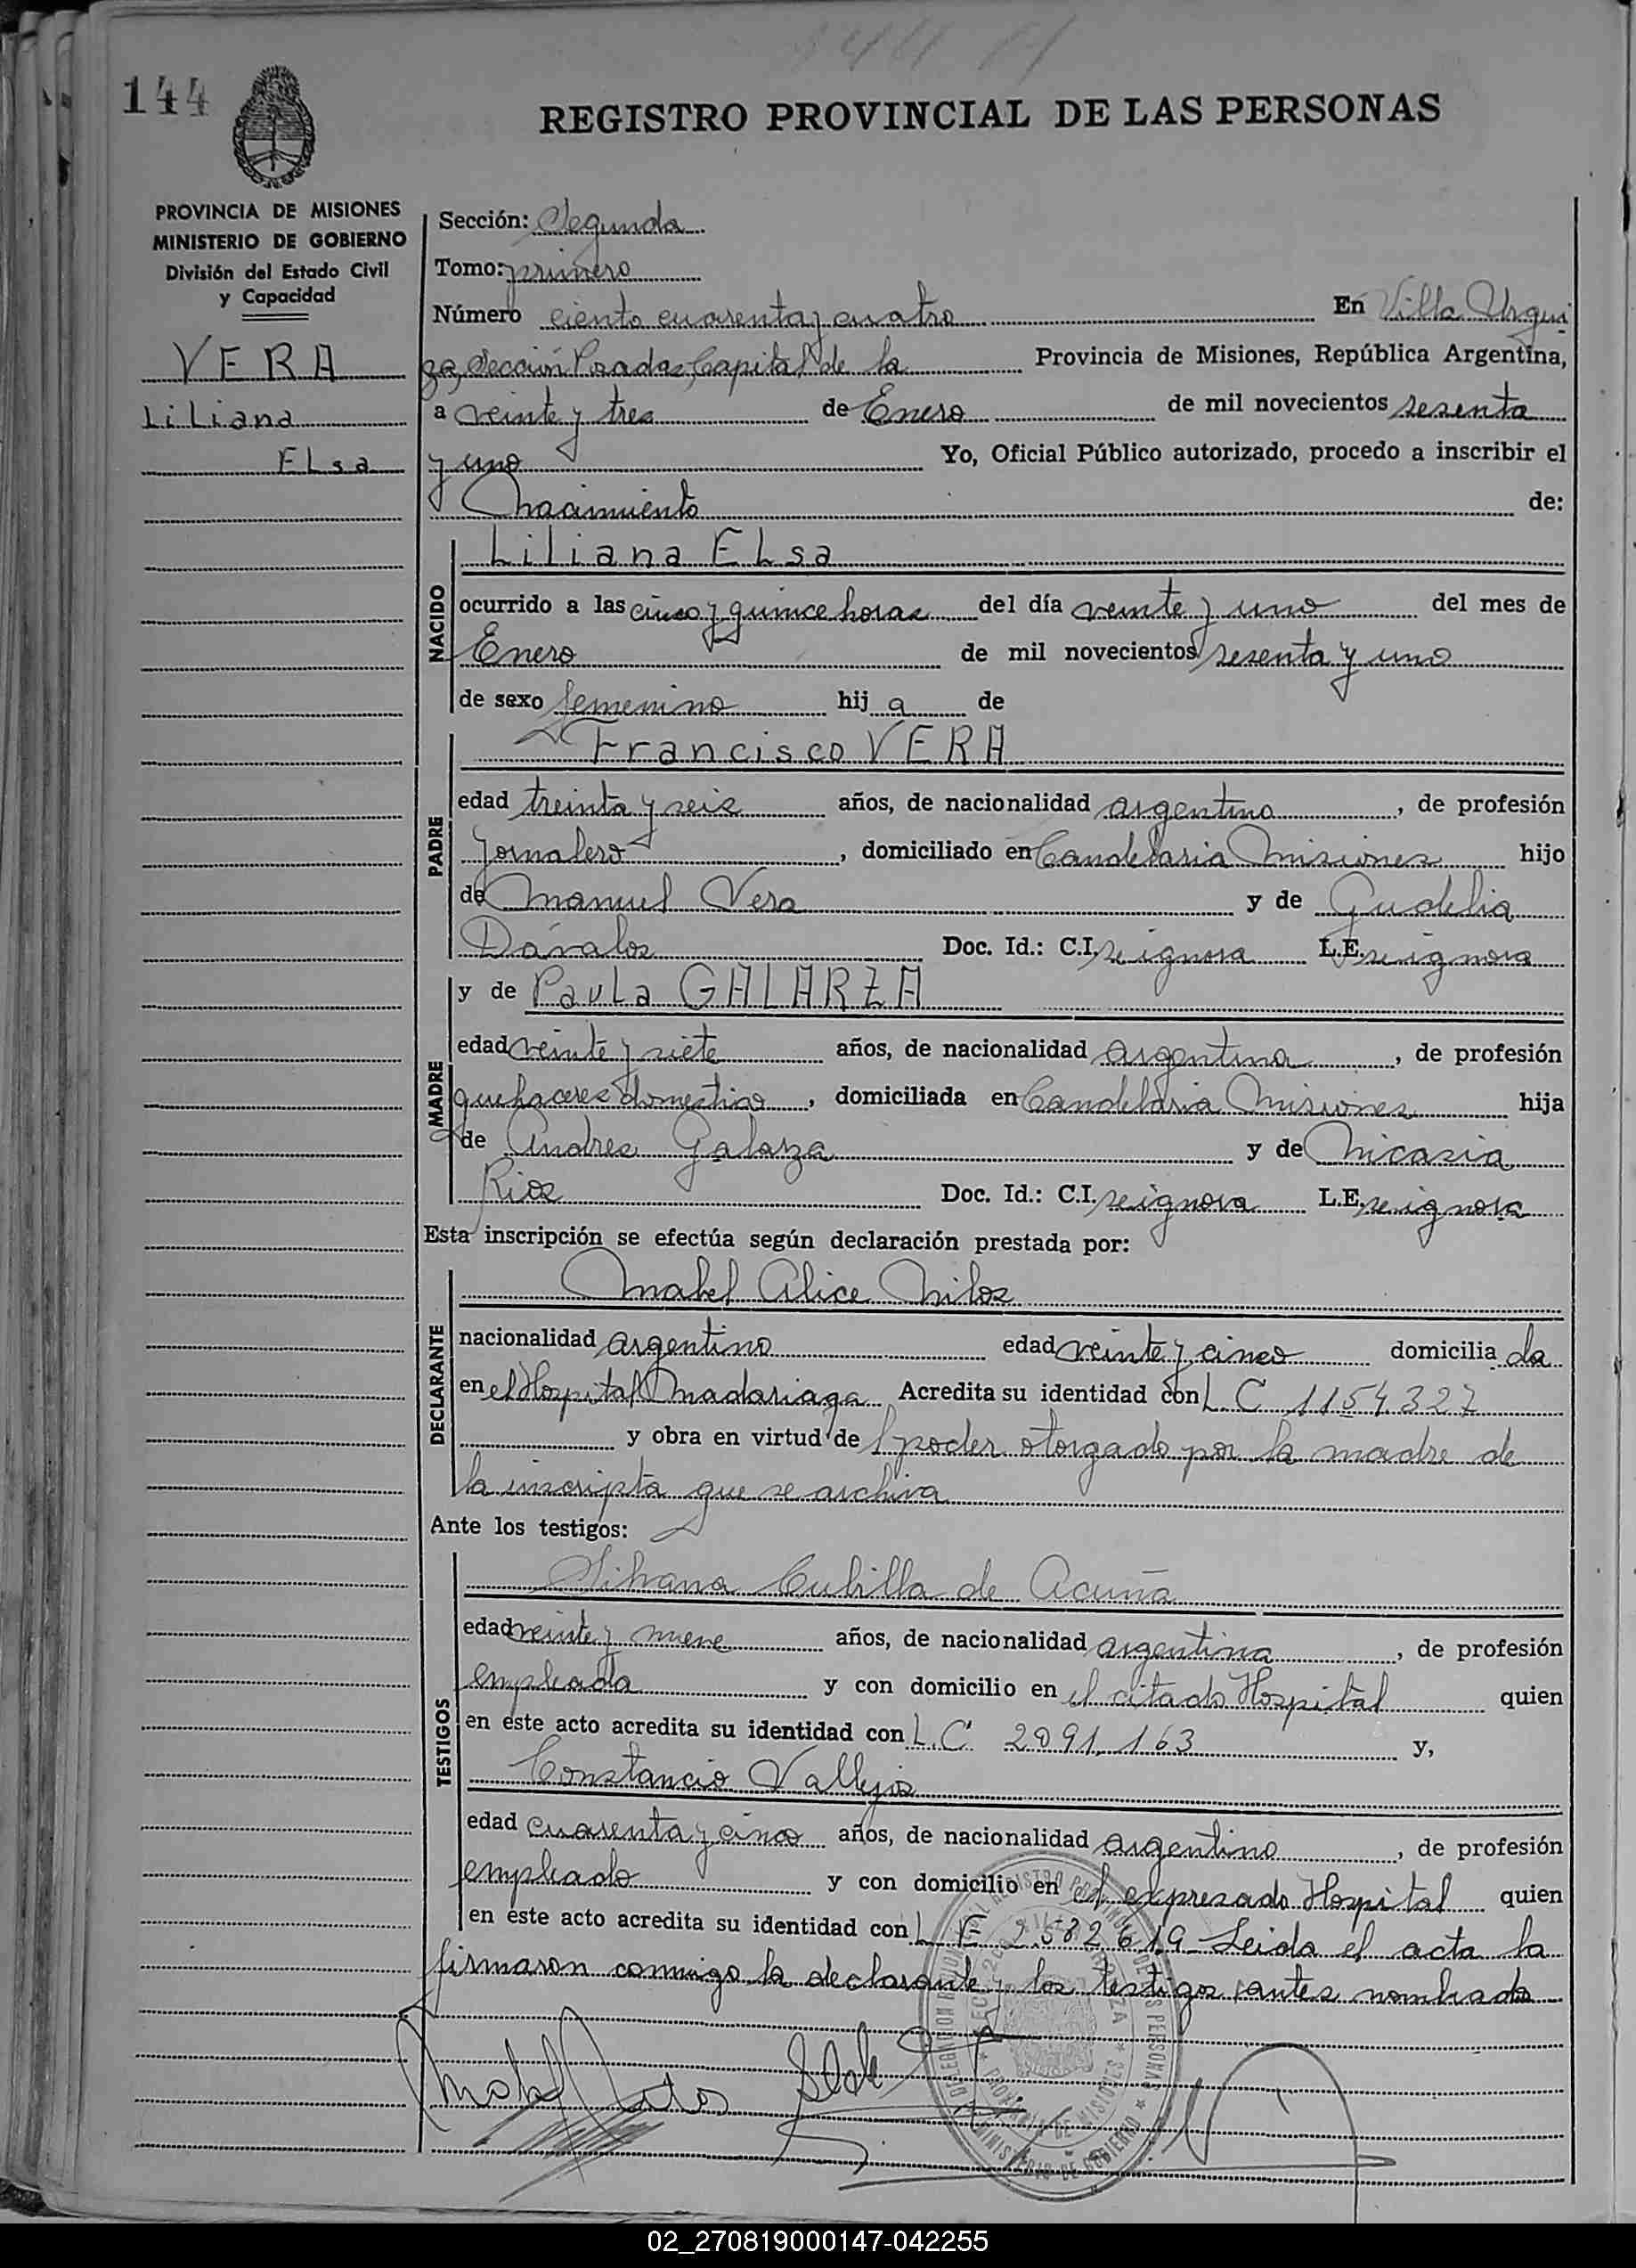 144
REGISTRO PROVINCIAL DE LAS PERSONAS
PROVINCIA DE MISIONES
MINISTERIO DE GOBIERNO
División del Estado Civil
y Capacidad
VERA
Liliana
Elsa
Sección: Segunda
Tomo: primero
Número ciento cuarenta y cuatro En Villa Urqui
za, Sección Posadas, Capital de la Provincia de Misiones, República Argentina,
a veinte y tres de Enero de mil novecientos sesenta
y uno Yo, Oficial Público autorizado, procedo a inscribir el
Nacimiento de:
NACIDO
Liliana Elsa
ocurrido a las cinco y quince horas del día veinte y uno del mes de
Enero de mil novecientos sesenta y uno
de sexo femenino hij a de
PADRE
Francisco VERA
edad treinta y seis años, de nacionalidad argentino, de profesión
Jornalero, domiciliado en Candelaria Misiones hijo
de Manuel Vera y de Gudelia
Dávalos Doc. Id.: C.I. se ignora L.E. se ignora
MADRE
y de Paula GALARZA
edad veinte y siete años, de nacionalidad Argentina, de profesión
quehaceres domestico, domiciliada en Candelaria Misiones hija
de Andres Galarza y de Nicasia
Rios Doc. Id.: C.I. se ignora L.E. se ignora
Esta inscripción se efectúa según declaración prestada por:
DECLARANTE
Mabel Alice Milos
nacionalidad argentino edad veinte y cinco domicilia da
en el Hospital Madariaga Acredita su identidad con L. C 1154.327
y obra en virtud de poder otorgado por la madre de
la inscripta que se archiva
Ante los testigos:
TESTIGOS
Silvana Cubilla de Acuña
edad veinte y nueve años, de nacionalidad argentina, de profesión
empleada y con domicilio en el citado Hospital quien
en este acto acredita su identidad con L.C 2091.163 y,
Constancio Vallejos
edad cuarenta y cinco años, de nacionalidad argentino, de profesión
empleado y con domicilio en el expresado Hospital quien
en este acto acredita su identidad con L E 2.582619 Leida el acta la
firmaron conmigo la declarante y los testigos antes nombrado
02_270819000147-042255